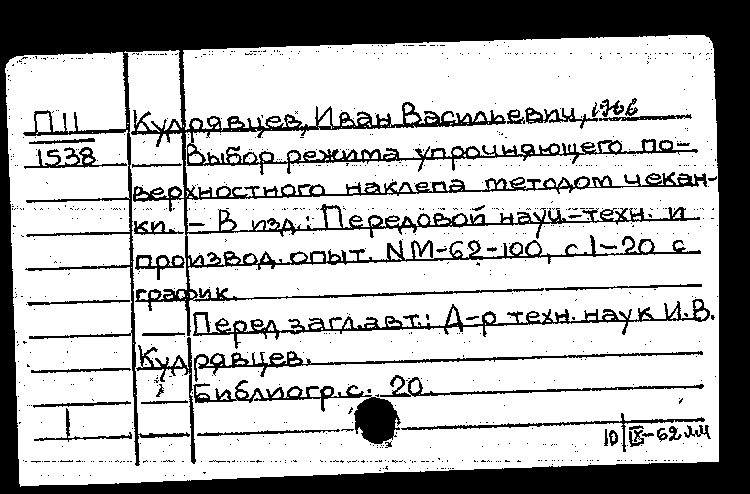 П11 Кудрявцев, Иван Васильевич, 1966
1538 Выбор режима упрочняющего по-
верхностного наклепа методом чекан-
ки. – В изд.: Передовой науч.-техн. и
производ. опыт. NМ-62-100, с.1-20 с
график.
Перед загл.авт.: Д-р техн. наук И.В.
Кудрявцев.
Библиогр.с. 20.
10/IX-62 лм